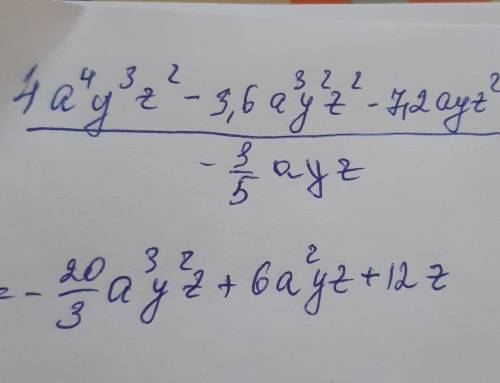 4a⁴y³z² - 3,6a³y²z² - 7,2ayz²
- 3/5 ayz
= - 20/3 a³y²z + 6a²yz + 12z